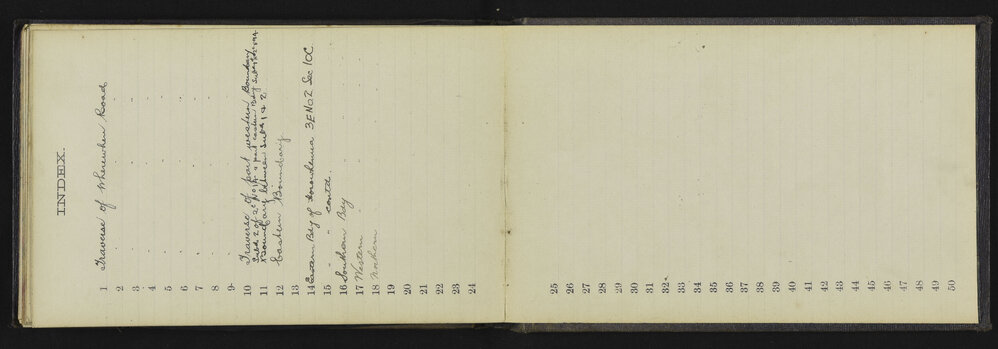 INDEX.
1 Traverse of Wherewhen Road
2
3
4
5
6
7
8
9
10 Traverse of part western Boundary
Subd 2 of 2C No 1A & part eastern Bdy Subd
11 Boundary between Subd 1 & 2
12 Eastern Boundary
13
14 Eastern Bdy of Horowhenua 3E No 2 Sec 10C
15 " " contd.
16 Southern Bdy
17 Western
18 Northern
19
20
21
22
23
24
25
26
27
28
29
30
31
32
33
34
35
36
37
38
39
40
41
42
43
44
45
46
47
48
49
50